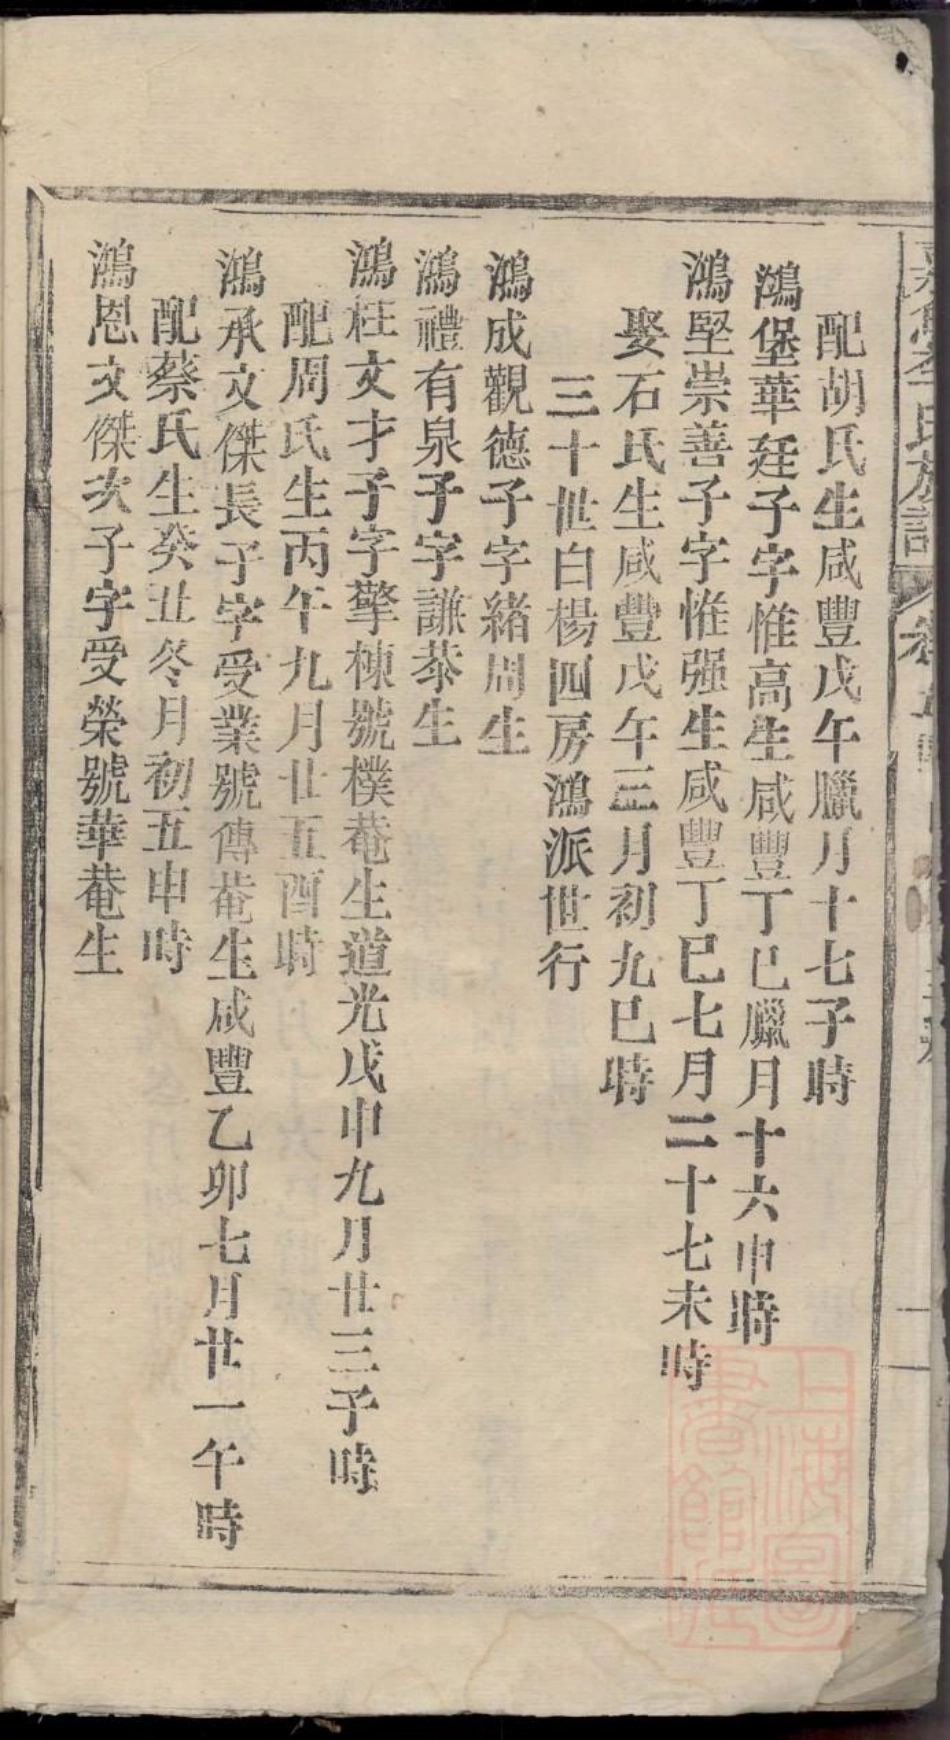 配胡氏生咸豐戊午臘月十七子時
鴻堡華廷子字惟高生咸豐丁巳臘月十六申時
鴻堅崇善子字惟强生咸豐丁巳七月二十七未時
娶石氏生咸豐戊午三月初九巳時
三十世白楊四房鴻派世行
鴻成觀德子字緒周生
鴻禮有泉子字謙泰生
鴻柱文才子字擎棟號樸菴生道光戊申九月廿三子時
配周氏生丙午九月廿五酉時
鴻承文傑長子字受業號傳菴生咸豐乙卯七月廿一午時
配蔡氏生癸丑冬月初五申時
鴻恩文傑次子字受榮號華菴生
上海圖書館藏